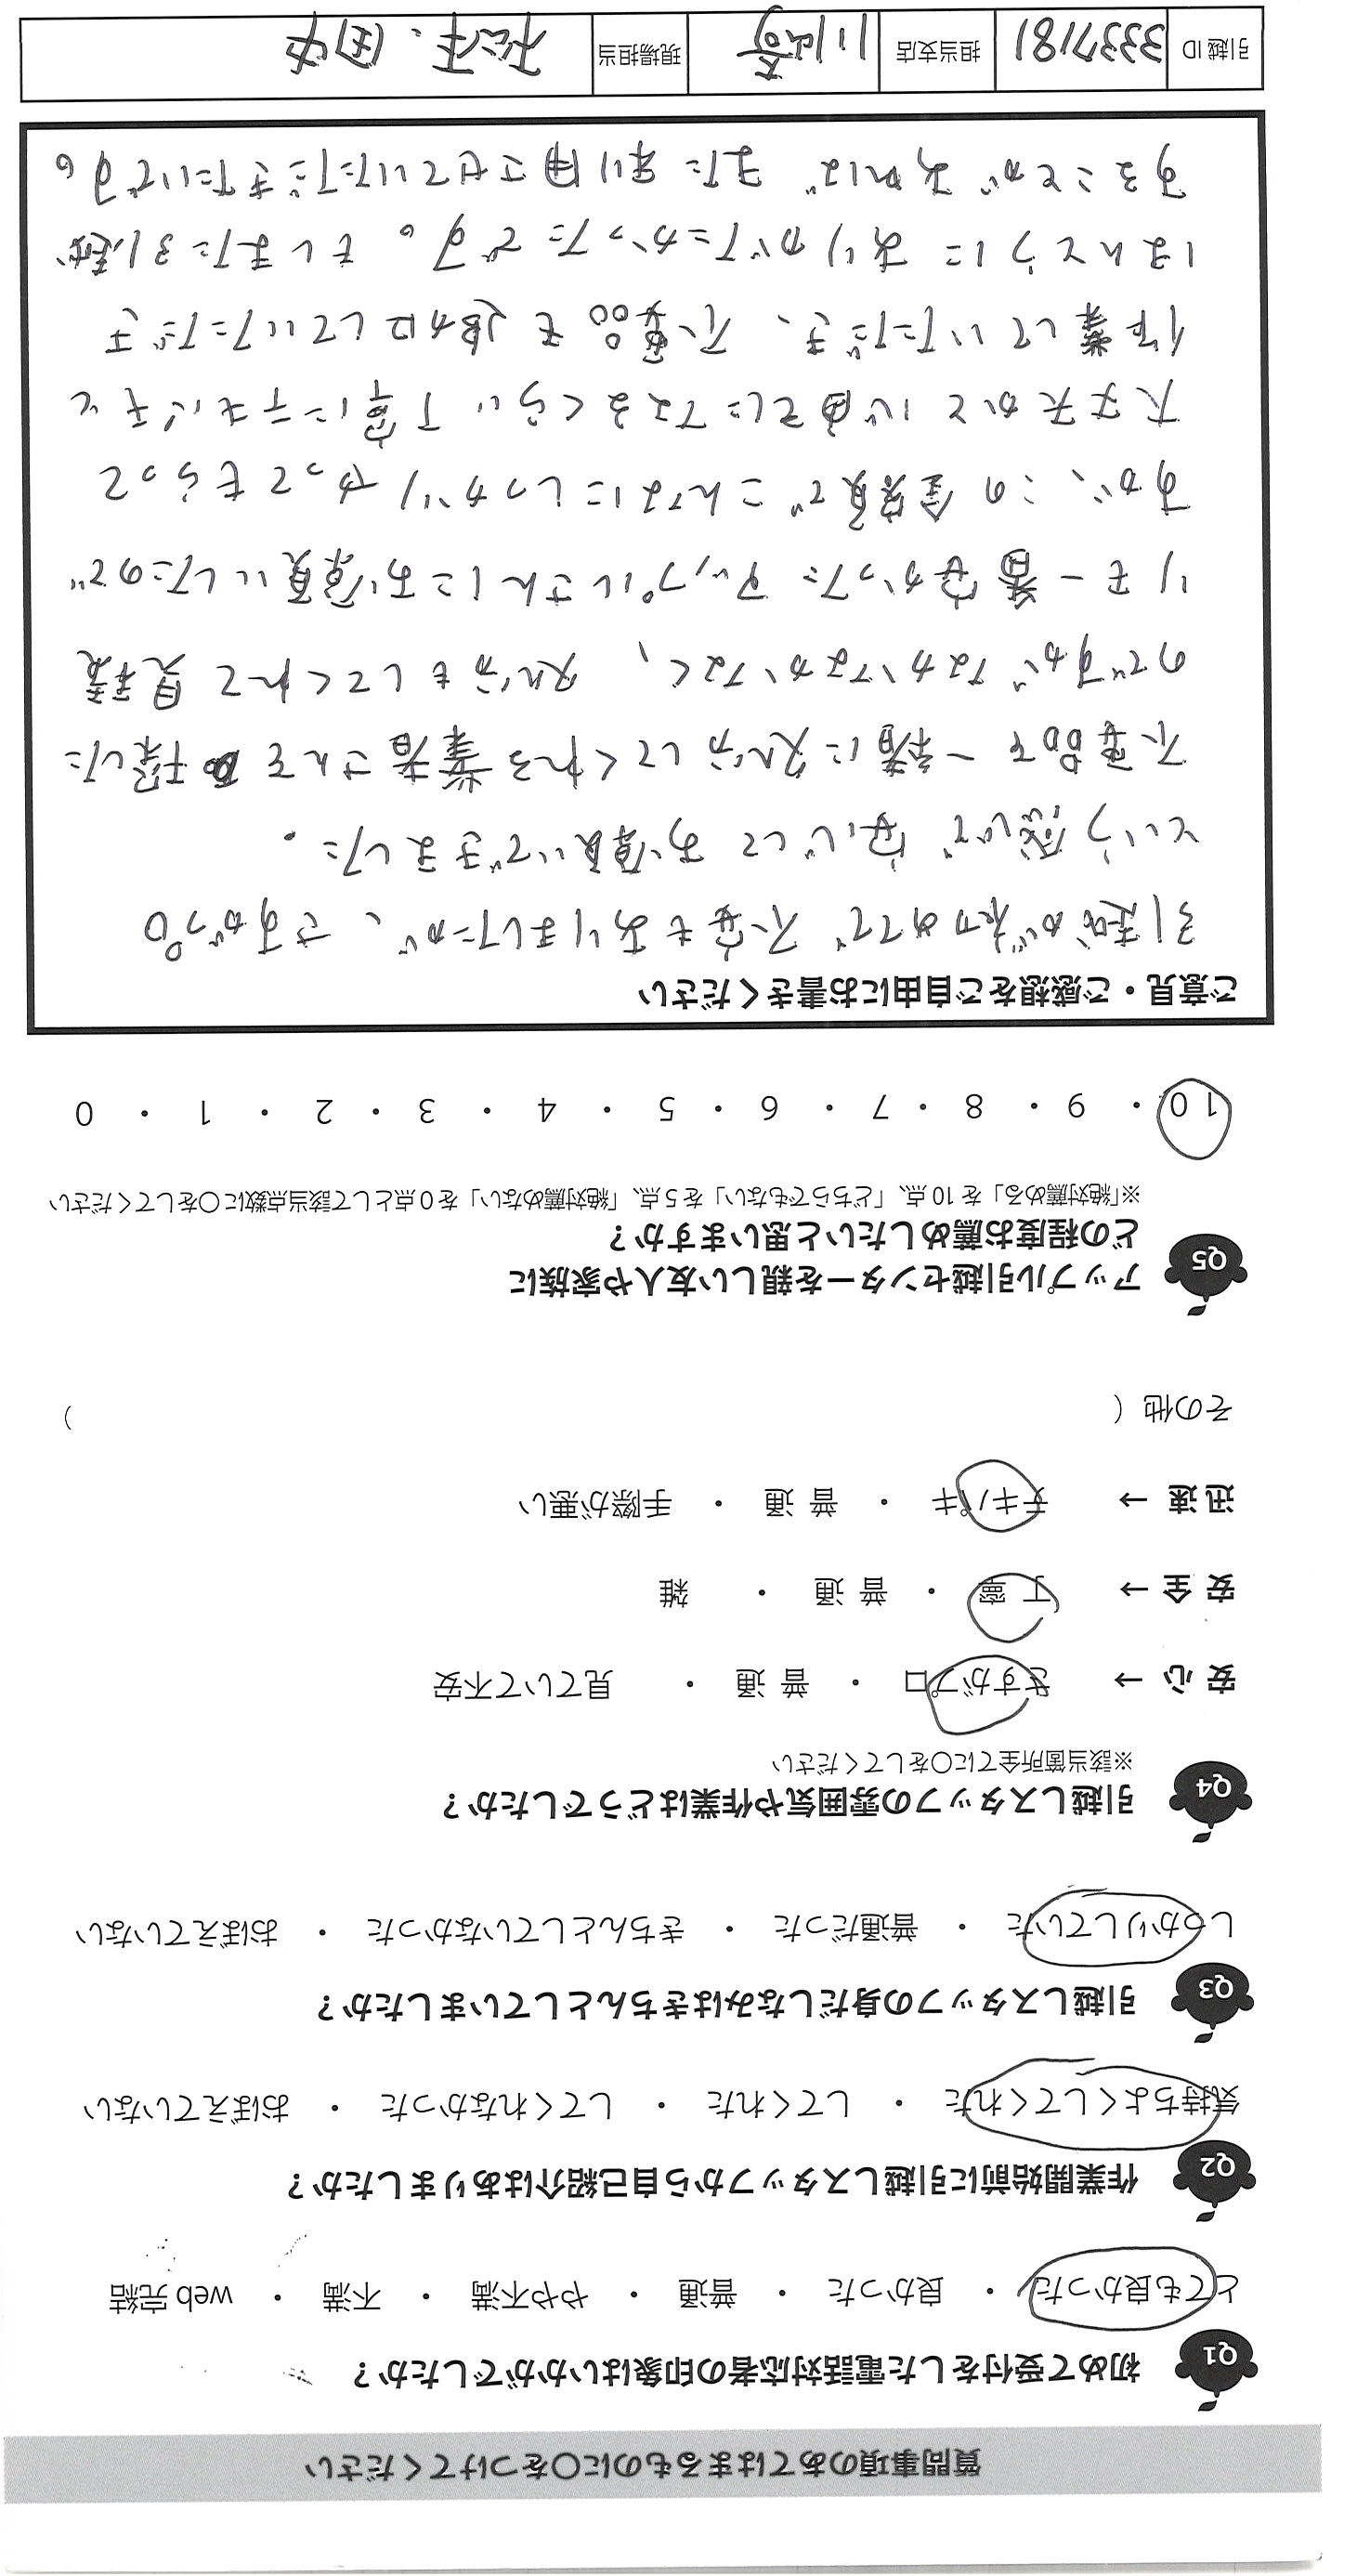 質問事項のあてはまるものに○をつけてください
Q1 初めて受付をした電話対応者の印象はいかがでしたか？
とても良かった ・ 良かった ・ 普通 ・ やや不満 ・ 不満 ・ web 完結
Q2 作業開始前に引越しスタッフから自己紹介はありましたか？
気持ちよくしてくれた ・ してくれた ・ してくれなかった ・ おぼえていない
Q3 引越しスタッフの身だしなみはきちんとしていましたか？
しっかりしていた ・ 普通だった ・ きちんとしていなかった ・ おぼえていない
Q4 引越しスタッフの雰囲気や作業はどうでしたか？
※該当箇所全てに○をしてください
安 心 → さすがプロ ・ 普 通 ・ 見ていて不安
安 全 → 丁 寧 ・ 普 通 ・ 雑
迅 速 → テキパキ ・ 普 通 ・ 手際が悪い
その他（ ）
Q5 アップル引越センターを親しい友人や家族に
どの程度お薦めしたいと思いますか？
※「絶対薦める」を 10 点、「どちらでもない」を 5 点、「絶対薦めない」を 0 点として該当点数に○をしてください
10 ・ 9 ・ 8 ・ 7 ・ 6 ・ 5 ・ 4 ・ 3 ・ 2 ・ 1 ・ 0
ご意見・ご感想をご自由にお書きください
引越が初めてで不安もありましたが、さすがプロ
という感じで安心してお願いできました。
不要品を一緒に処分してくれる業者さんを探した
のですがなかなかなく、処分もしてくれて見積
りも一番安かったアップルさんにお願いしたので
すが、この金額でこんなにしっかりやってもらって
大丈夫かと心配になるくらい丁寧にテキパキと
作業していただき、不要品も追加していただき
ほんとうにありがたかったです。もしまた引越が
することがあればまた利用させていただきたいです。
引越 ID 3337181 担当支店 川崎 現場担当 松本、田中